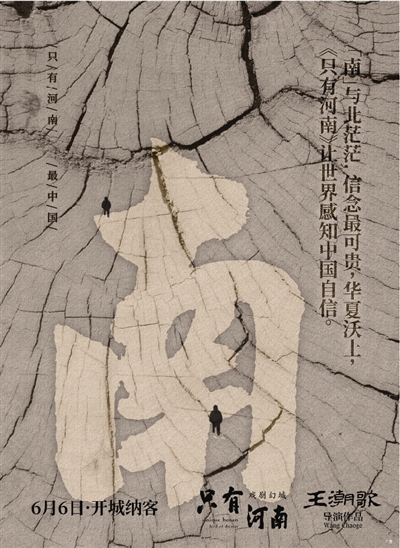 「南」与北茫茫,信念最可贵,华夏沃土,
《只有河南》让世界感知中国自信。
只/有/河/南/ 最/中/国/
南
6月6日·开城纳客
只有
河南
戏剧幻城
王潮歌
导演作品
Wang Chaoge